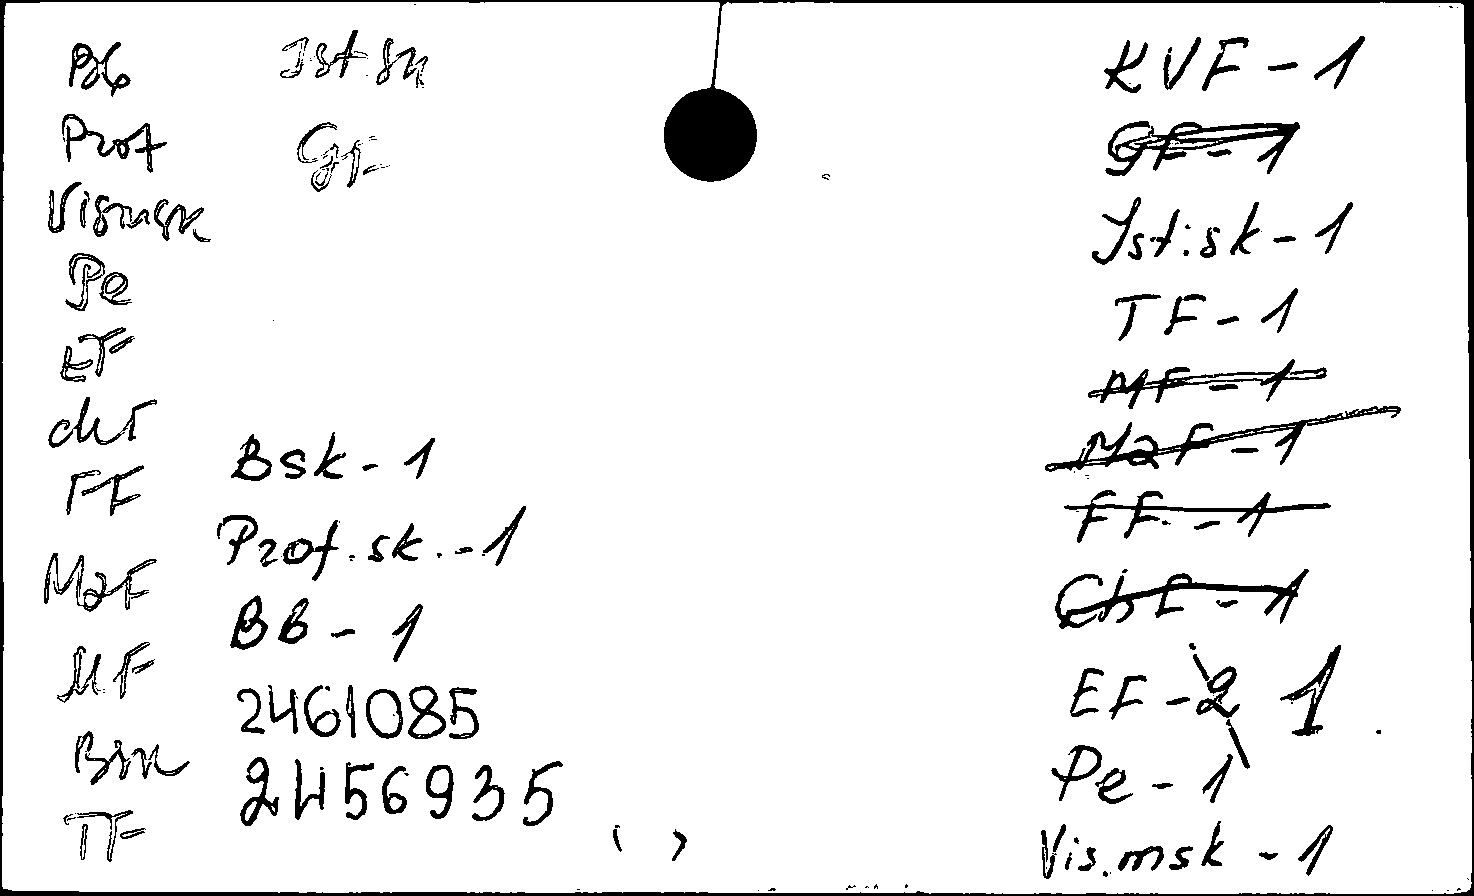 Bb
Prof
Vismsk
Pe
EF
chF
FF
MaF
MF
Bsk
TF
Ist.sk
GF
Bsk - 1
Prof.sk. - 1
BB - 1
2461085
2456935
KVF - 1
GF - 1
Ist.sk - 1
TF - 1
MF - 1
MaF - 1
FF. - 1
ChF - 1
EF - 2 1
Pe - 1
Vis.msk - 1